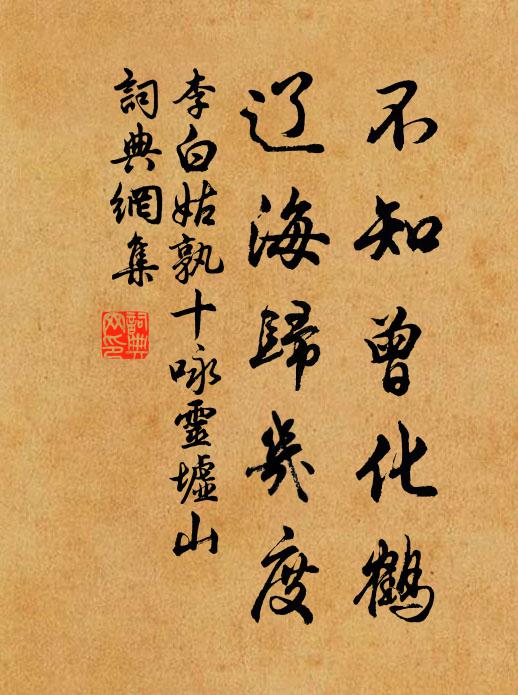 不知曾化鶴
辽海歸幾度
李白姑孰十咏靈墟山
詞典網集
詞典
网印